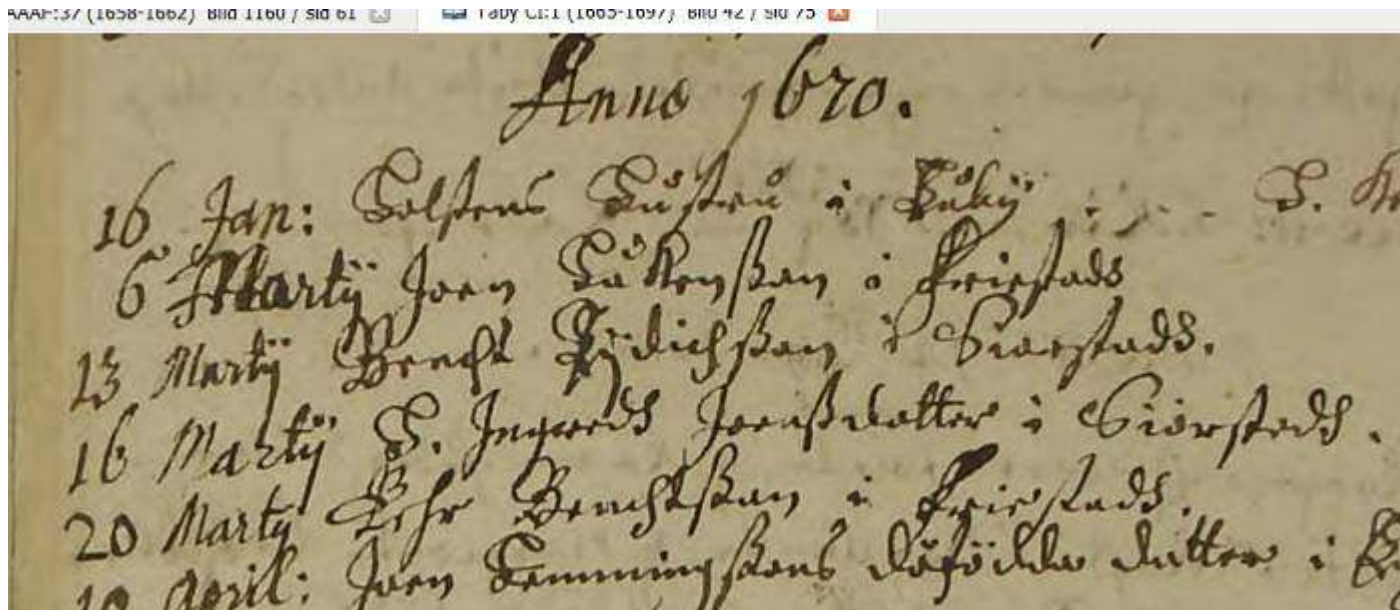 AAAF:37 (1658-1662) Bild 1160 / sid 61 Täby CI:1 (1665-1697) Bild 42 / sid 75
Anno 1670.
16 Jan: Holstens Hustru i
6 Martij Joen Håkenßon i Friestadh
13 Martij Bencht Dijdichßon i Siorstadh.
16 Martij H. Ingredh Joensdotter i Siörstedh.
20 Martij Pehr Benchtßon i Friestadh.
April: Joen Hemmingßons dödfödde dotter i